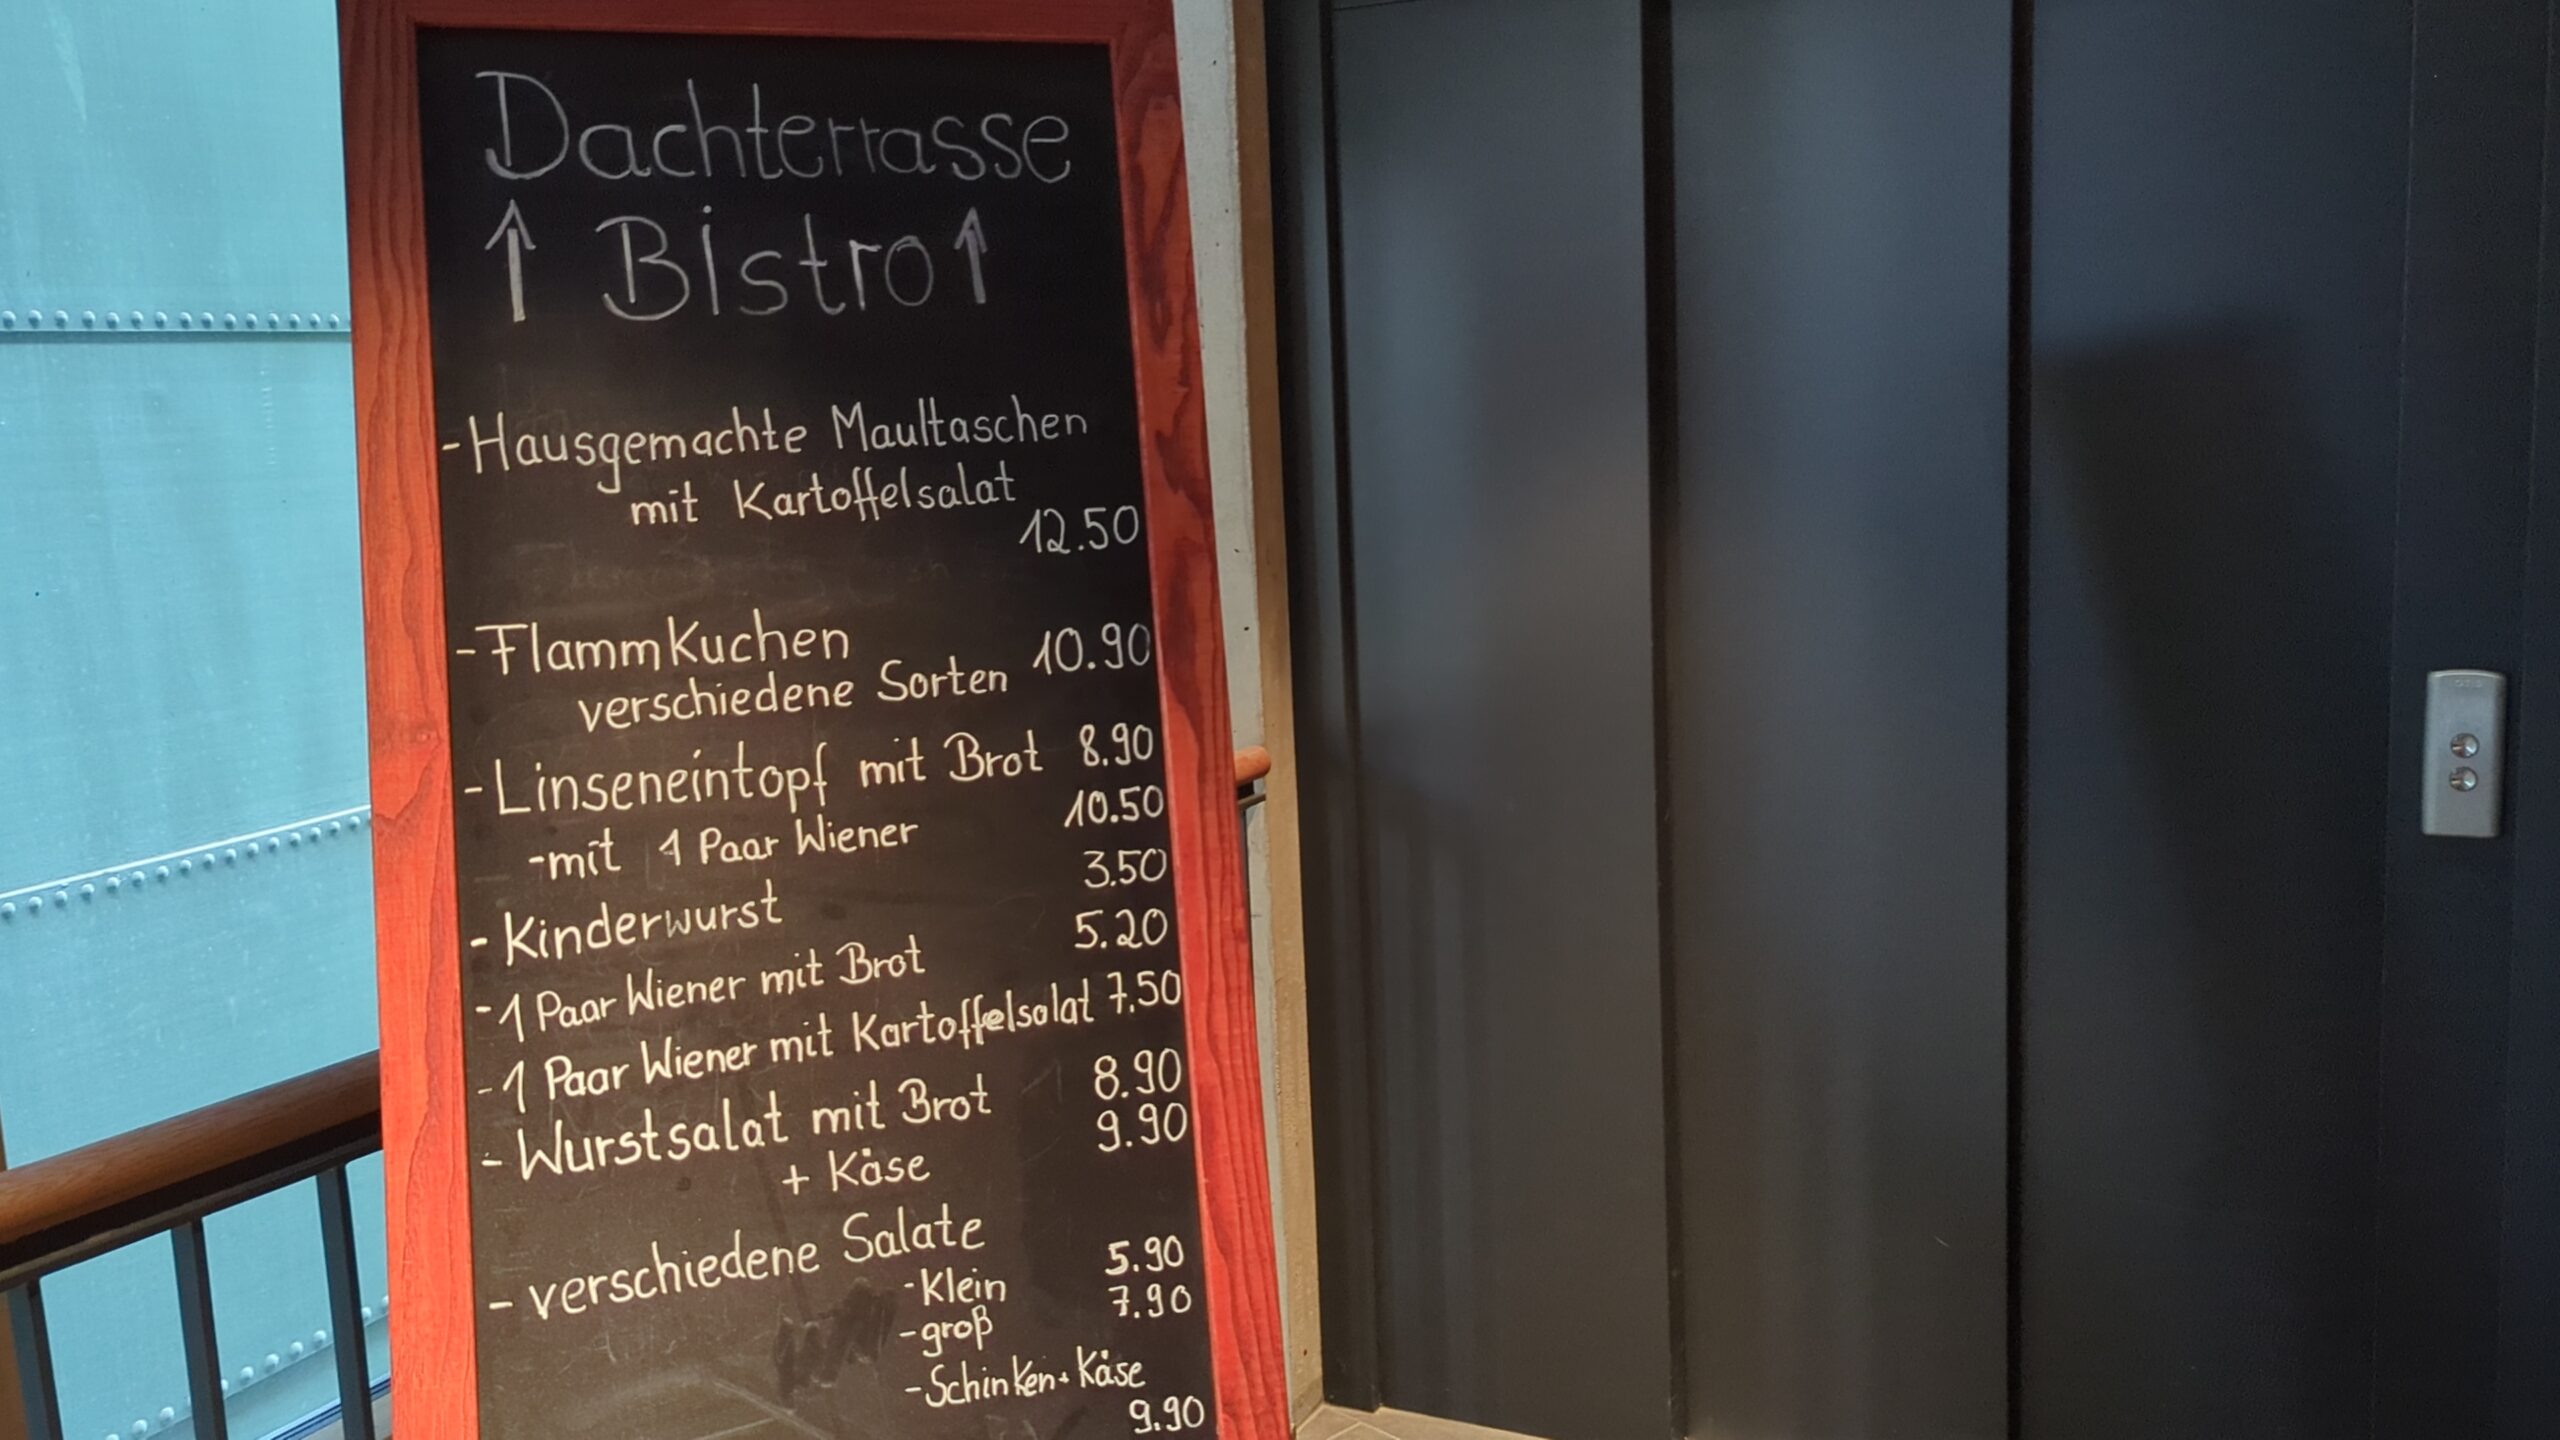 Dachterrasse
↑ Bistro ↑
- Hausgemachte Maultaschen
mit Kartoffelsalat
12.50
- Flammkuchen 10.90
verschiedene Sorten
- Linseneintopf mit Brot 8.90
- mit 1 Paar Wiener 10.50
- Kinderwurst 3.50
- 1 Paar Wiener mit Brot 5.20
- 1 Paar Wiener mit Kartoffelsalat 7.50
- Wurstsalat mit Brot 8.90
+ Käse 9.90
- verschiedene Salate
- Klein 5.90
- groß 7.90
- Schinken + Käse
9.90